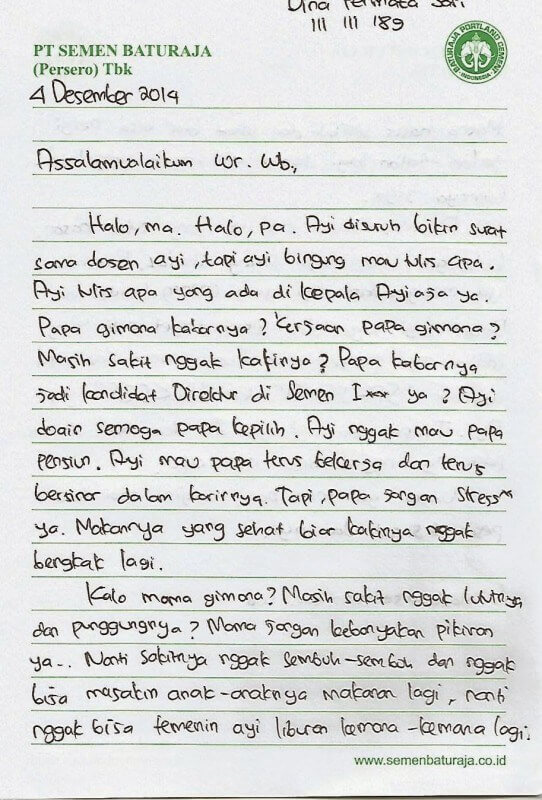 Dina Permata Sari
111 111 189
PT SEMEN BATURAJA
(Persero) Tbk
BATURAJA PORTLAND CEMENT
INDONESIA
4 Desember 2014
Assalamualaikum wr. wb.,
Halo, ma. Halo, pa. Ayi disuruh bikin surat
sama dosen ayi, tapi ayi bingung mau tulis apa.
Ayi tulis apa yang ada di kepala Ayi aja ya.
Papa gimana kabarnya? Kerjaan papa gimana?
Masih sakit nggak kakinya? Papa kabarnya
jadi kandidat Direktur di Semen I*** ya? Ayi
doain semoga papa kepilih. Ayi nggak mau papa
pensiun. Ayi mau papa terus bekerja dan terus
bersinar dalam karirnya. Tapi, papa jangan stress
ya. Makannya yang sehat biar kakinya nggak
bengkak lagi.
Kalo mama gimana? Masih sakit nggak lututnya
dan punggungnya? Mama jangan kebanyakan pikiran
ya... Nanti sakitnya nggak sembuh-sembuh dan nggak
bisa masakin anak-anaknya makanan lagi, nanti
nggak bisa temenin ayi liburan kemana-kemana lagi.
www.semenbaturaja.co.id